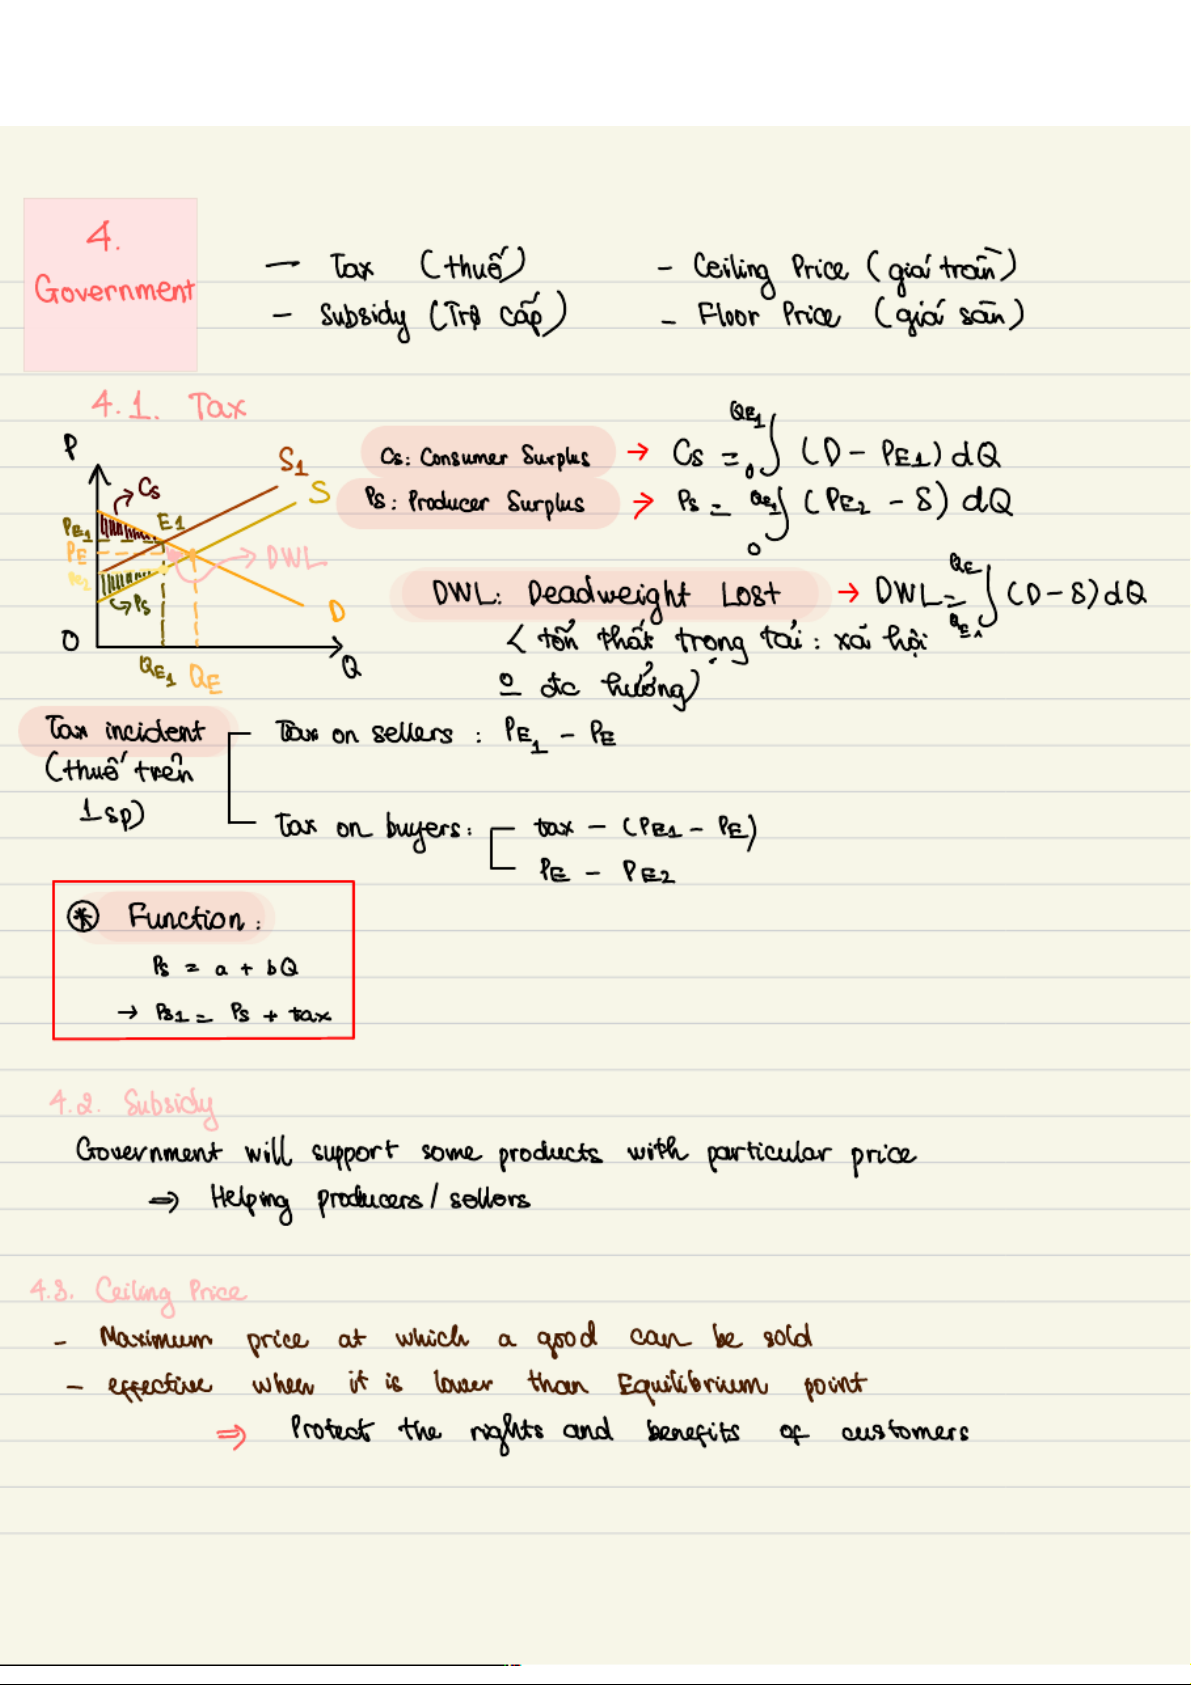 4.
Government
— Tax (thuế)
- Ceiling Price (giá trần)
- Subsidy (Trợ cấp)
- Floor Price (giá sàn)
4.1. Tax
P
S1
S
Cs
E1
PE1
PE
PE2
DWL
Ps
D
O
QE1
QE
Q
Cs: Consumer Surplus → Cs = ∫₀^QE1 (D - PE1) dQ
Ps: Producer Surplus → Ps = ∫₀^QE1 (PE2 - S) dQ
DWL: Deadweight Lost → DWL = ∫_QE1^QE (D - S) dQ
(tổn thất trọng tải: xã hội
o đc hưởng)
Tax incident
(thuế trên
1 sp)
Tax on sellers: PE1 - PE
Tax on buyers:
tax - (PE1 - PE)
PE - PE2
* Function:
Ps = a + bQ
→ Ps1 = Ps + tax
4.2. Subsidy
Government will support some products with particular price
⇒ Helping producers / sellers
4.3. Ceiling Price
- Maximum price at which a good can be sold
- effective when it is lower than Equilibrium point
⇒ Protect the rights and benefits of customers